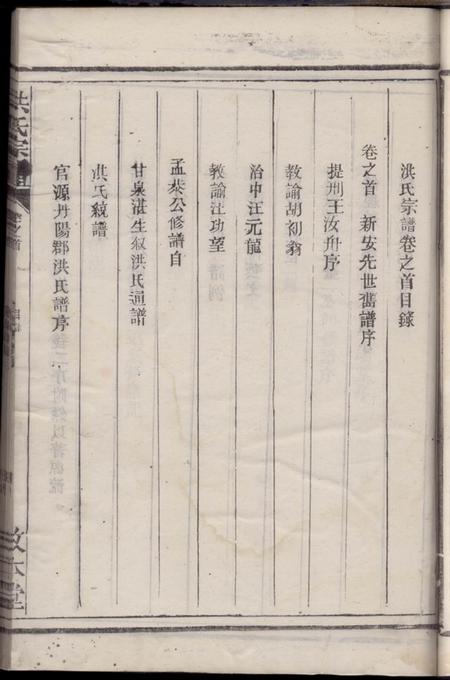 洪氏宗譜卷之首目錄
卷之首　新安先世舊譜序
提刑王汝舟序
教諭胡初翁
治中汪元龍
教諭汪功望
孟棻公修譜自
甘泉湛生叙洪氏通譜
洪氏統譜
官源丹陽郡洪氏譜序
洪氏宗譜
卷之首
敦本堂